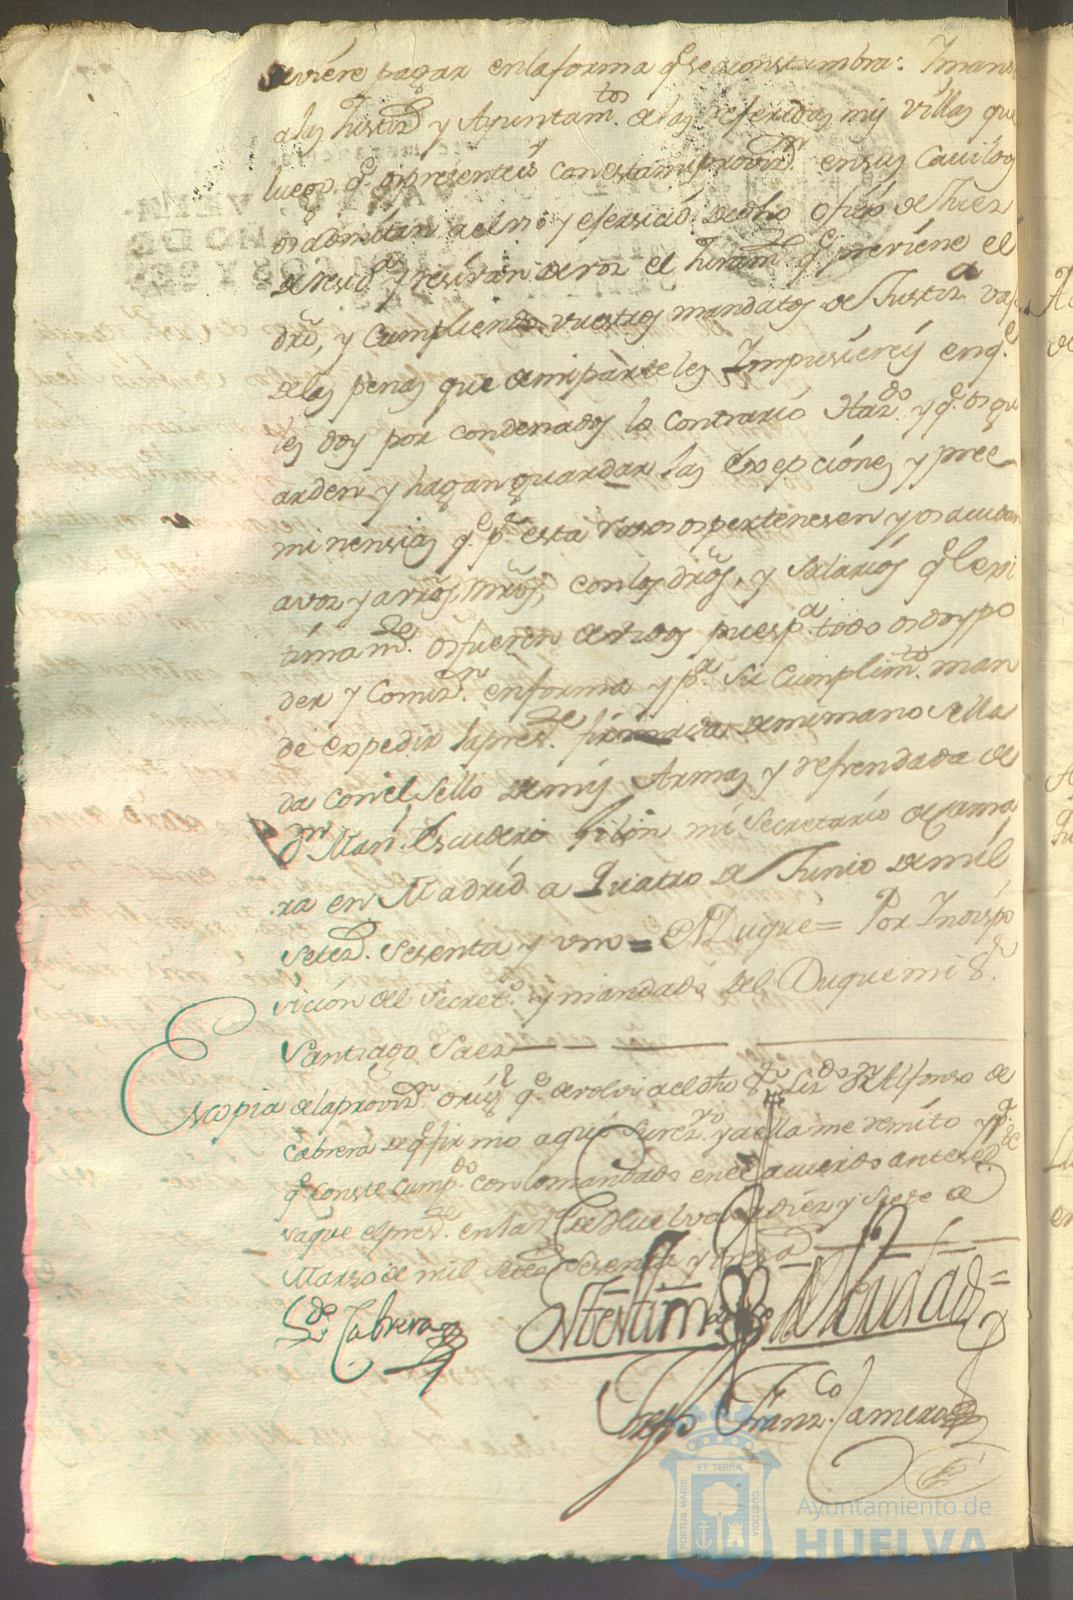 deviere pagar en la forma q.e se aconstumbra: Y mando
a las Justiz.s y Ayuntam.tos de las referidas mis Villas que
luego q.e os presenteis con esta mi provis.n en sus Cavildos
os admitan al uso y exersicio de dho ofizio de Juez
de resid.a y resivan de vos el Juram.to q.e previene el
dro, y Cumpliendo vuestros mandatos de Justiz.a vajo
de las penas que de mi parte les Impusiereis en q.e
les doy por condenados lo Contrario Haz.do y q.e os gu
arden y hagan guardar las Exepciones y pree
minensias q.e p.r esta razon os pertenesen y os acudan
a vos y a vros Mros, con los dros, y Salarios q.e lexi
timam.te os fueren devidos pues p.a todo os doy po
der y Comis.n en forma y p.a su Cumplim.to man
de expedir la pres.te firmada de mi mano sella
da con el Sello de mis Armas y refrendada de
D.n Man.l Escudero Gilón mi Secretario de Cama
ra en Madrid a Quatro de Junio de mil
setez.s sesenta y uno = El Duque = Por Indispo
sición del Secret.o y mandado del Duque mi S.r
Santiago Saez
Es copia de la provis.n orig.l q.e devolvi a el dho S.r Liz.do D.n Alfonso de
Cabrera de q.e firmo aqui su rez.vo y a ella me remito y p.a
q.e conste cump.do con lo mandado en el acuerdo antesed.te
saque el pres.te en la V.a de Huelva a diez y siete de
Marzo de mil setez.s sesenta y tres a.s
L.do Cabrera
En testim.o de Verdad =
Diego Franz.co Camero
PORTUS MARIS
ET TERRÆ
CUSTODIA
Ayuntamiento de
HUELVA